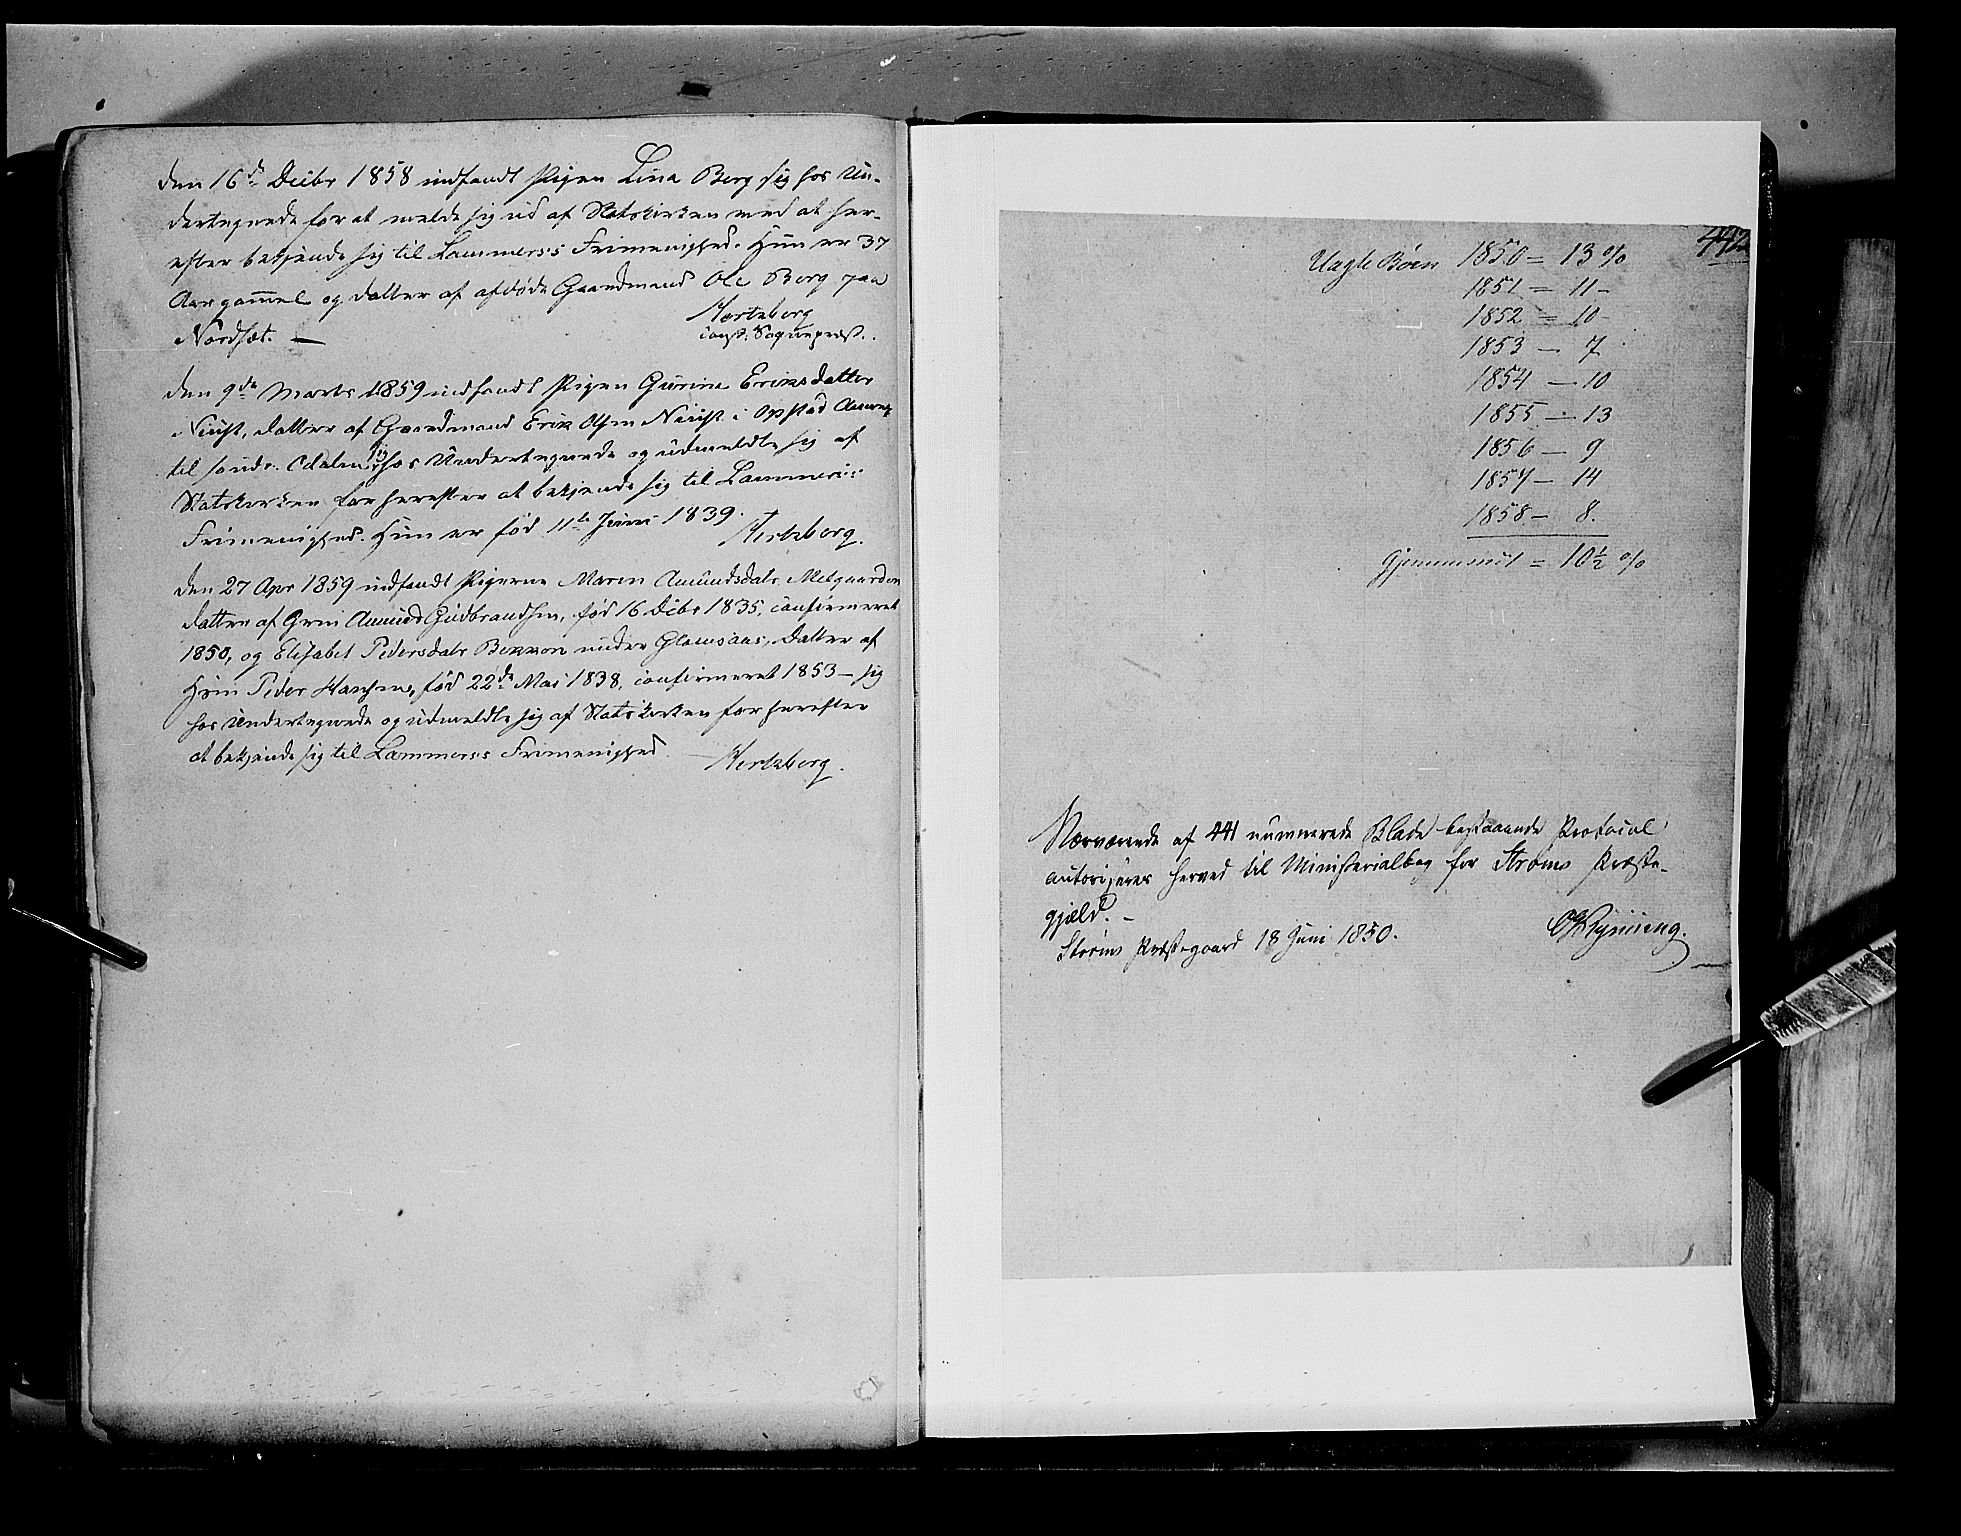 den 16de Decbr 1858 indfandt Pigen Lina Berg sig hos Un-
dertegnede for at melde sig ud af Statskirken med at her-
efter bekjende sig til Lammerss Frimenighed. Hun er 37
Aar gammel og datter af afdøde Gaardmand Ole Berg paa
Nordset. —
Hertzberg
const. Sognepræst.
Den 9de Marts 1859 indfandt Pigen Gurine Eriksdatter
datter af Gaardmand Erik Olsen i Opstad Annex
til søndr. Odalen sig hos Undertegnede og udmeldte sig af
Statskirken for herefter at bekjende sig til Lammers's
Frimenighed. Hun er født 11te Juni 1839.
Hertzberg.
Den 27 Apr 1859 indfandt Pigerne Maren Amundsdatr. Melgaarden
datter af Amund Gudbrandsen, født 16 Dcbr 1835, confirmeret
1850, og Elisabet Pedersdatr under Glomsaas, datter af
Peder Hansen, født 22de Mai 1838, confirmeret 1853 — sig
hos Undertegnede og udmeldte sig af Statskirken for herefter
at bekjende sig til Lammerss Frimenighed.
Hertzberg.
442
Uægte Børn 1850 = 13 %
1851 = 11 –
1852 = 10
1853 — 7
1854 — 10
1855 — 13
1856 — 9
1857 — 14
1858 — 8.
Gjennemsnit = 10 ½ %
Nærværende af 441 numererede Blade bestaaende Protocol
autoriseres herved til Ministerialbog for Strøms Præste-
gjeld. –
Strøms Præstegaard 18 Juni 1850.